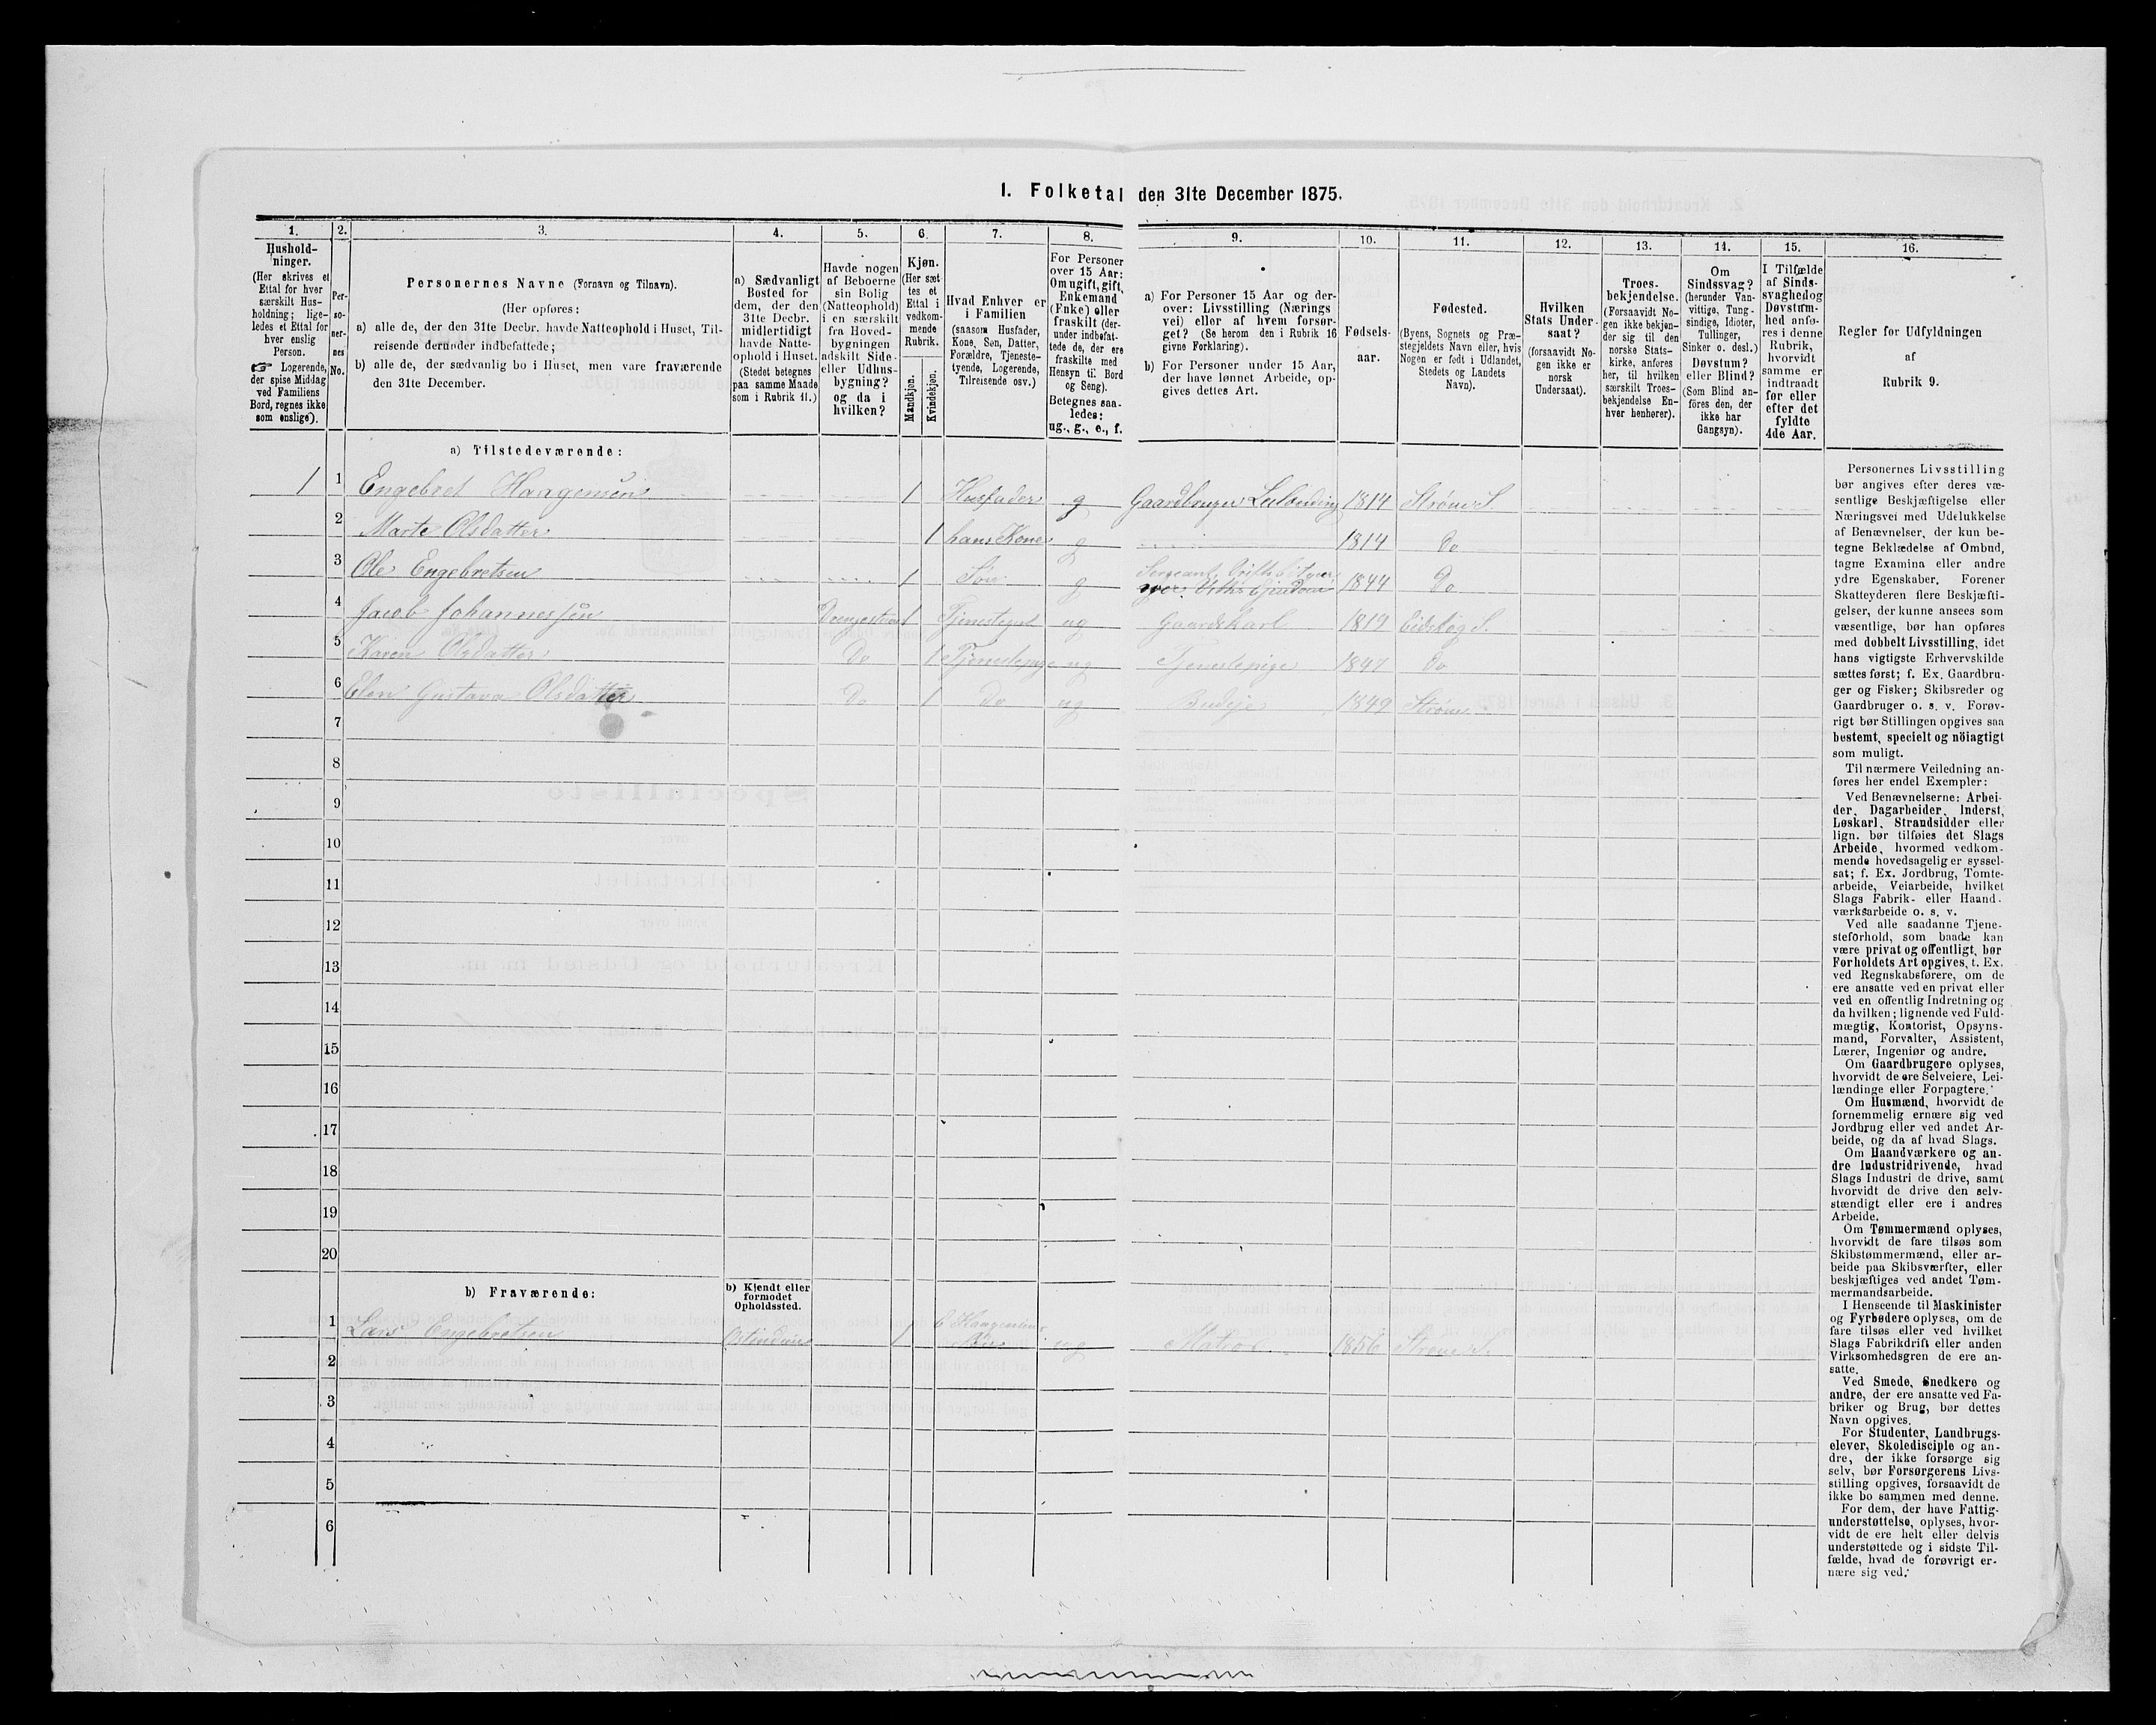 1. Folketal den 31te December 1875.
1. 2. 3. 4. 5. 6. 7. 8. 9. 10. 11. 12. 13. 14. 15. 16.
Hushold-
ninger.
(Her skrives et
Ettal for hver
særskilt Hus-
holdning; lige-
ledes et Ettal for
hver enslig
Person.
☞ Logerende,
der spise Middag
ved Familiens
Bord, regnes ikke
som enslige).
Per-
so-
ner-
nes
No.
Personernes Navne (Fornavn og Tilnavn).
(Her opføres:
a) alle de, der den 31te Decbr. havde Natteophold i Huset, Til-
reisende derunder indbefattede;
b) alle de, der sædvanlig bo i Huset, men vare fraværende
den 31te December.
a) Sædvanligt
Bosted for
dem, der den
31te Decbr.
midlertidigt
havde Natte-
ophold i Huset.
(Stedet betegnes
paa samme Maade
som i Rubrik 11.)
Havde nogen
af Beboerne
sin Bolig
(Natteophold)
i en særskilt
fra Hoved-
bygningen
adskilt Side-
eller Udhus-
bygning?
og da i
hvilken?
Kjøn.
(Her sæt
tes et
Ettal i
vedkom-
mende
Rubrik.
Mandkjøn.
Kvindekjøn.
Hvad Enhver er
i Familien
(saasom Husfader,
Kone, Søn, Datter,
Forældre, Tjeneste-
tyende, Logerende,
Tilreisende osv.)
For Personer
over 15 Aar:
Om ugift, gift,
Enkemand
(Enke) eller
fraskilt (der-
under indbefat-
tede de, der ere
fraskilte med
Hensyn til Bord
og Seng).
Betegnes saa-
ledes:
ug., g., e., f.
a) For Personer 15 Aar og der-
over: Livsstilling (Nærings
vei) eller af hvem forsør-
get? (Se herom den i Rubrik 16
givne Forklaring).
b) For Personer under 15 Aar,
der have lønnet Arbeide, op-
gives dettes Art.
Fødsels-
aar.
Fødested.
(Byens, Sognets og Præ-
stegjeldets Navn eller, hvis
Nogen er født i Udlandet,
Stedets og Landets
Navn).
Hvilken
Stats Under-
saat?
(forsaavidt No-
gen ikke er
norsk
Undersaat).
Troes-
bekjendelse.
(Forsaavidt No-
gen ikke bekjen-
der sig til den
norske Stats-
kirke, anføres
her, til hvilken
særskilt Troes-
bekjendelse En-
hver henhører).
Om
Sindssvag?
(herunder Van-
vittige, Tung-
sindige, Idioter,
Tullinger,
Sinker o. desl.)
Døvstum?
eller Blind?
(Som Blind an-
føres den, der
ikke har
Gangsyn).
I Tilfælde
af Sinds-
svaghed og
Døvstum-
hed anfø-
res i denne
Rubrik,
hvorvidt
samme er
indtraadt
før eller
efter det
fyldte
4de Aar.
Regler for Udfyldningen
af
Rubrik 9.
a) Tilstedeværende:
1 1 Engebret Haagensen 1 Husfader g Gaardbruger Leilænding 1814 Strøm S.
2 Marte Olsdatter 1 hans Kone g 1814 Do
3 Ole Engebretsen 1 Søn g Sergeant 1844 Do
4 Jacob Johannessen Drengestue 1 Tjenestegut ug Gaardskarl 1819 Eidskog S.
5 Karen Olsdatter Do 1 Tjenestepige ug Tjenestepige 1847 Do
6 Elen Gustava Olsdatter Do 1 Do ug Budeje 1849 Strøm
7
8
9
10
11
12
13
14
15
16
17
18
19
20
b) Fraværende:
b) Kjendt eller
formodet
Opholdssted.
1 Lars Engebretsen Ostindien 1 E Haagensens Søn ug Matros 1856 Strøm S.
2
3
4
5
6
Personernes Livsstilling
bør angives efter deres væ-
sentlige Beskjæftigelse eller
Næringsvei med Udelukkelse
af Benævnelser, der kun be-
tegne Beklædelse af Ombud,
tagne Examina eller andre
ydre Egenskaber. Forener
Skatteyderen flere Beskjæfti-
gelser, der kunne ansees som
væsentlige, bør han opføres
med dobbelt Livsstilling, idet
hans vigtigste Erhvervskilde
sættes først; f. Ex. Gaardbru-
ger og Fisker; Skibsreder og
Gaardbruger o. s. v. Forøv-
rigt bør Stillingen opgives saa
bestemt, specielt og nöiagtigt
som muligt.
Til nærmere Veiledning an-
føres her endel Exempler:
Ved Benævnelserne: Arbei-
der, Dagarbeider, Inderst,
Løskarl, Strandsidder eller
lign. bør tilføies det Slags
Arbeide, hvormed vedkom-
mende hovedsagelig er syssel-
sat; f. Ex. Jordbrug, Tomte-
arbeide, Veiarbeide, hvilket
Slags Fabrik- eller Haand-
værksarbeide o. s. v.
Ved alle saadanne Tjene-
steforhold, som baade kan
være privat og offentligt, bør
Forholdets Art opgives, t. Ex.
ved Regnskabsførere, om de
ere ansatte ved en privat eller
ved en offentlig Indretning og
da hvilken; lignende ved Fuld-
mægtig, Kontorist, Opsyns-
mand, Forvalter, Assistent,
Lærer, Ingeniør og andre.
Om Gaardbrugere oplyses,
hvorvidt de ere Selveiere, Lei-
lændinge eller Forpagtere.
Om Husmænd, hvorvidt de
fornemmelig ernære sig ved
Jordbrug eller ved andet Ar-
beide, og da af hvad Slags.
Om Haandværkere og an-
dre Industridrivende, hvad
Slags Industri de drive, samt
hvorvidt de drive den selv-
stændigt eller ere i andres
Arbeide.
Om Tømmermænd oplyses,
hvorvidt de fare tilsøs som
Skibstømmermænd, eller ar-
beide paa Skibsværfter, eller
beskjæftiges ved andet Tøm-
mermandsarbeide.
I Henseende til Maskinister
og Fyrbødere oplyses, om de
fare tilsøs eller ved hvilket
Slags Fabrikdrift eller anden
Virksomhedsgren de ere an-
satte.
Ved Smede, Snedkere og
andre, der ere ansatte ved Fa-
briker og Brug, bør dettes
Navn opgives.
For Studenter, Landbrugs-
elever, Skoledisciple og an-
dre, der ikke forsørge sig
selv, bør Forsørgerens Livs-
stilling opgives, forsaavidt de
ikke bo sammen med denne.
For dem, der have Fattig-
understøttelse, oplyses, hvor-
vidt de ere helt eller delvis
understøttede og i sidste Til-
fælde, hvad de forøvrigt er-
nære sig ved.